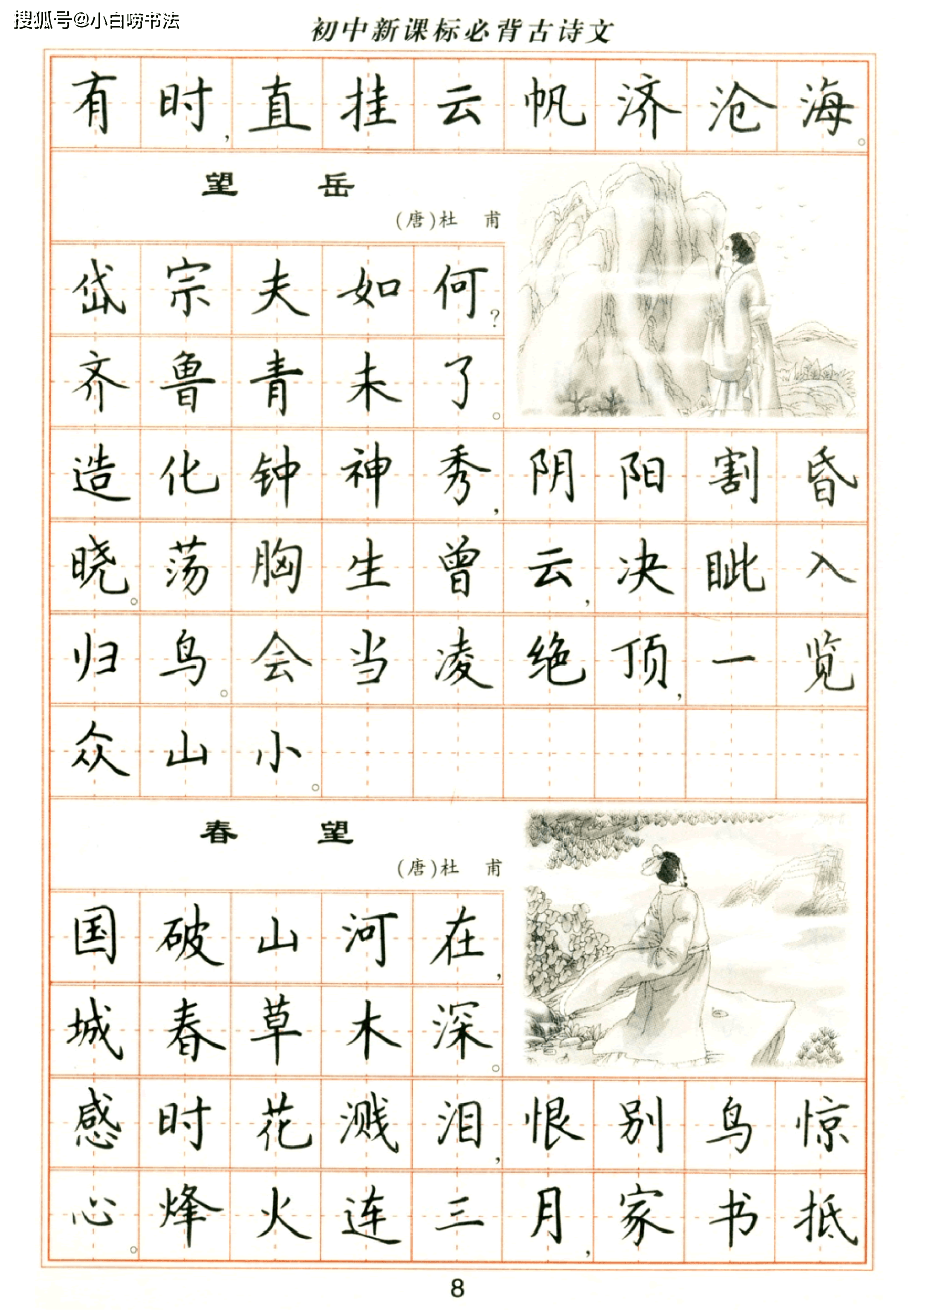 搜狐号@小白唠书法
初中新课标必背古诗文
有时,直挂云帆济沧海。
望 岳
(唐)杜 甫
岱宗夫如何?
齐鲁青未了。
造化钟神秀,阴阳割昏
晓。荡胸生曾云,决眦入
归鸟。会当凌绝顶,一览
众山小。
春 望
(唐)杜 甫
国破山河在,
城春草木深。
感时花溅泪,恨别鸟惊
心。烽火连三月,家书抵
8